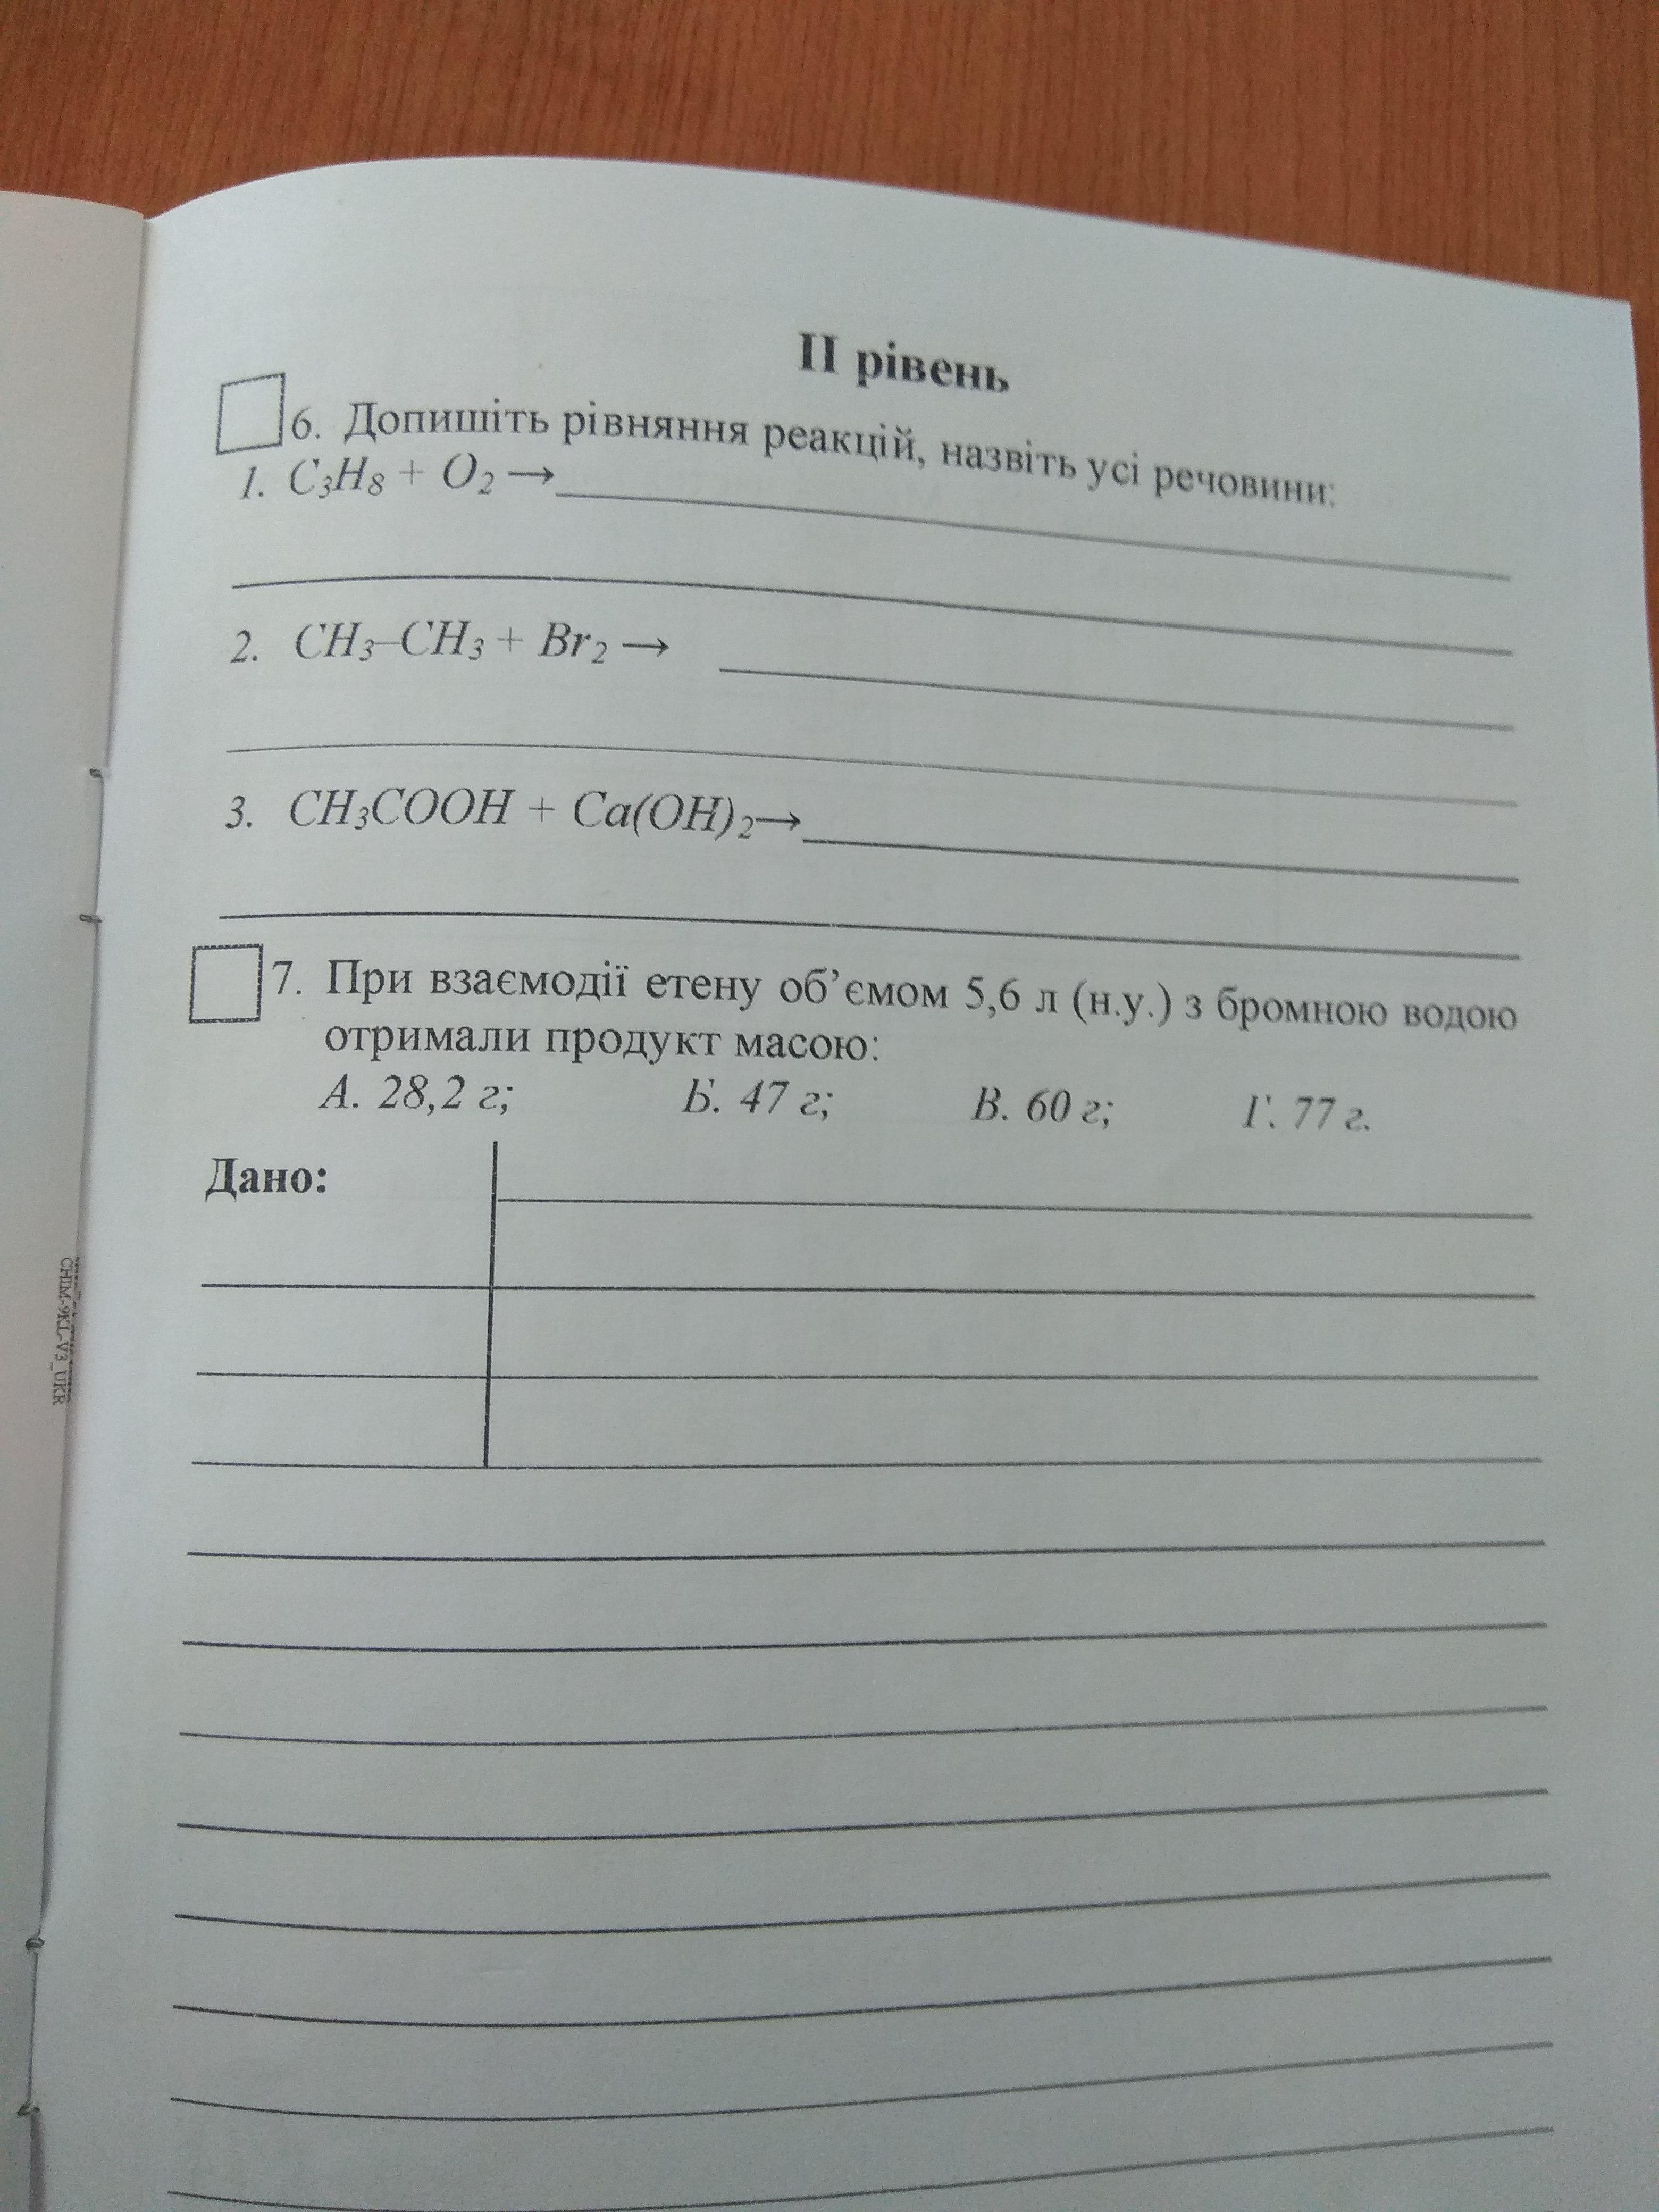 II рівень
6. Допишіть рівняння реакцій, назвіть усі речовини:
1. C₃H₈ + O₂ →
2. CH₃–CH₃ + Br₂ →
3. CH₃COOH + Ca(OH)₂→
7. При взаємодії етену об’ємом 5,6 л (н.у.) з бромною водою
отримали продукт масою:
А. 28,2 г; Б. 47 г; В. 60 г; Г. 77 г.
Дано: